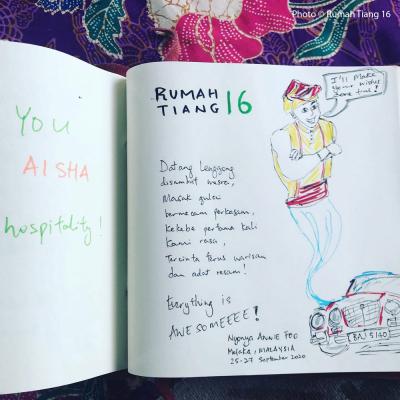 Photo © Rumah Tiang 16
YOU
AISHA
hospitality!
RUMAH
TIANG 16
I'll make
your wishes
come true!
Datang Lenggong
disambut mesra,
Masak gulai
bermacam perkasam,
Kekebe pertama kali
kami rasa,
Tercinta terus warisan
dan adat resam!
Everything is
AWESOMEEEE!
Nyonya ANNIE FOO
Melaka, MALAYSIA
25-27 September 2020